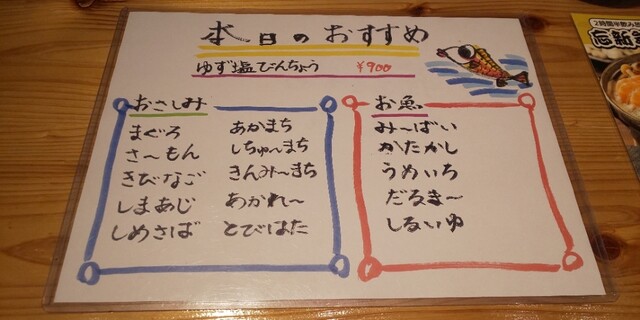 本日のおすすめ
ゆず塩びんちょう ¥900
おさしみ
まぐろ
さ〜もん
きびなご
しまあじ
しめさば
あかまち
しちゅ〜まち
きんみ〜まち
あかれ〜
とびはた
お魚
み〜ばい
かたかし
うめいろ
だるま〜
しるいゆ
2時間半飲み放
忘新年